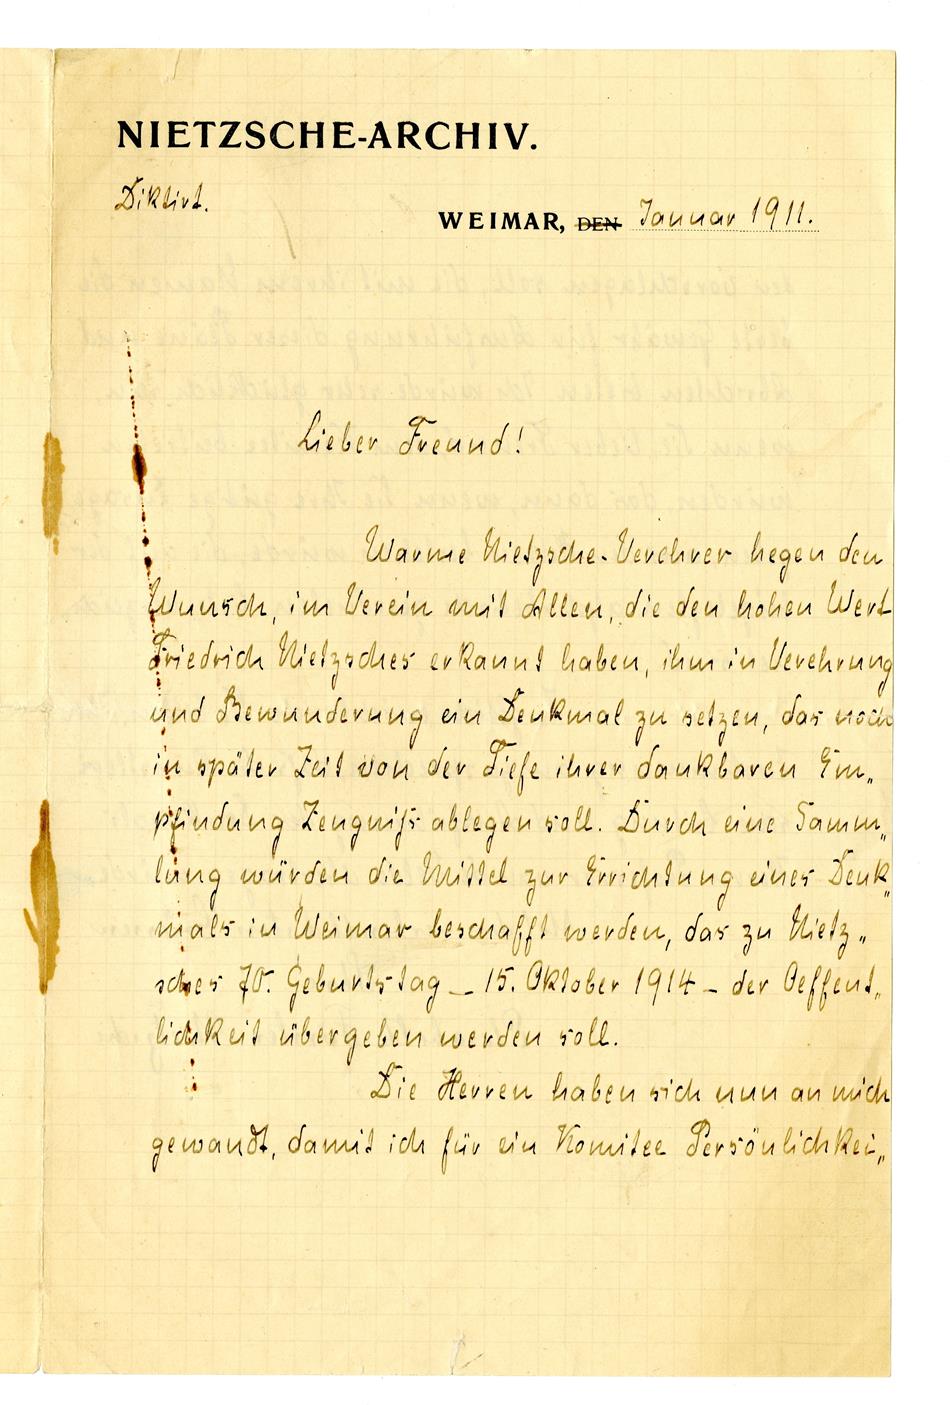 NIETZSCHE-ARCHIV.
Diktirt.
WEIMAR, DEN Januar 1911.
Lieber Freund!
Warme Nietzsche-Verehrer hegen den
Wunsch, im Verein mit Allen, die den hohen Wert
Friedrich Nietzsches erkannt haben, ihm in Verehrung
und Bewunderung ein Denkmal zu setzen, das noch
in später Zeit von der Tiefe ihrer dankbaren Em„
pfindung Zeugniß ablegen soll. Durch eine Samm„
lung würden die Mittel zur Errichtung eines Denk„
mals in Weimar beschafft werden, das zu Nietz„
sches 70. Geburtstag – 15. Oktober 1914 – der Oeffent„
lichkeit übergeben werden soll.
Die Herren haben sich nun an mich
gewandt, damit ich für ein Komitee Persönlichkei„